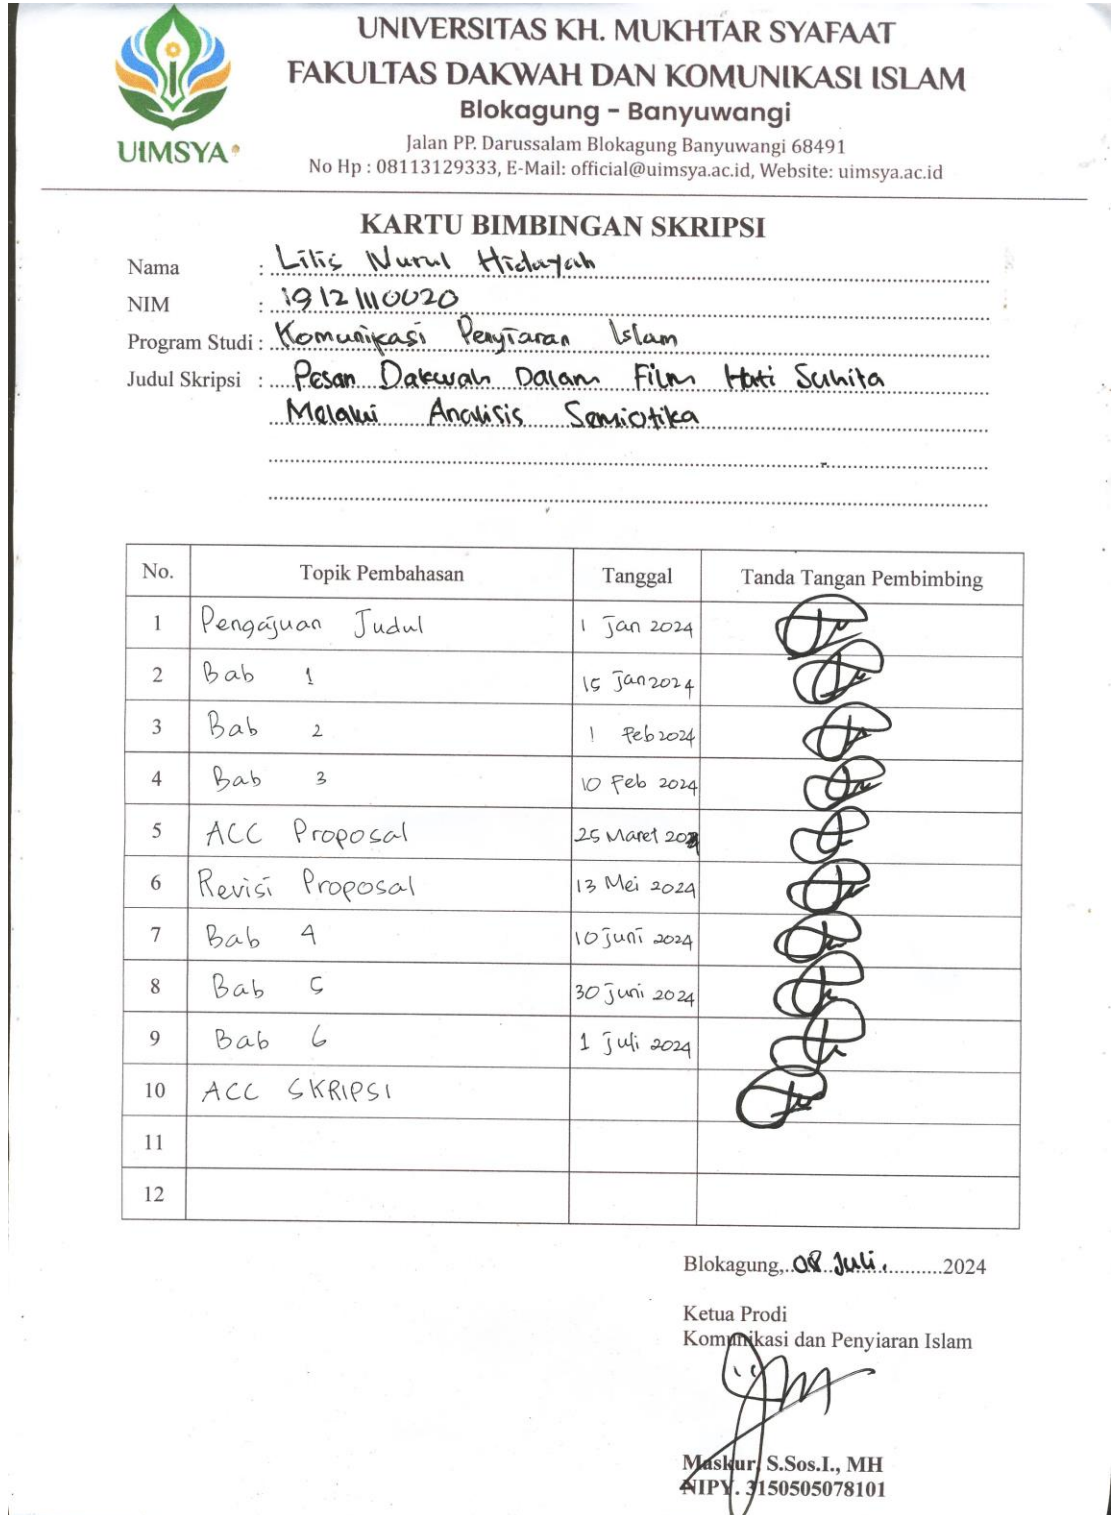 UNIVERSITAS KH. MUKHTAR SYAFAAT
FAKULTAS DAKWAH DAN KOMUNIKASI ISLAM
Blokagung - Banyuwangi
UIMSYA
Jalan PP. Darussalam Blokagung Banyuwangi 68491
No Hp : 08113129333, E-Mail: official@uimsya.ac.id, Website: uimsya.ac.id
KARTU BIMBINGAN SKRIPSI
Nama : Lilis Nurul Hidayah
NIM : 19121110020
Program Studi : Komunikasi Penyiaran Islam
Judul Skripsi : Pesan Dakwah Dalam Film Hati Suhita
Melalui Analisis Semiotika
No. Topik Pembahasan Tanggal Tanda Tangan Pembimbing
1 Pengajuan Judul 1 Jan 2024
2 Bab 1 15 Jan 2024
3 Bab 2 1 Feb 2024
4 Bab 3 10 Feb 2024
5 ACC Proposal 25 Maret 2024
6 Revisi Proposal 13 Mei 2024
7 Bab 4 10 Juni 2024
8 Bab 5 30 Juni 2024
9 Bab 6 1 Juli 2024
10 ACC SKRIPSI
11
12
Blokagung, 08 Juli. 2024
Ketua Prodi
Komunikasi dan Penyiaran Islam
Maskur, S.Sos.I., MH
NIPY. 3150505078101